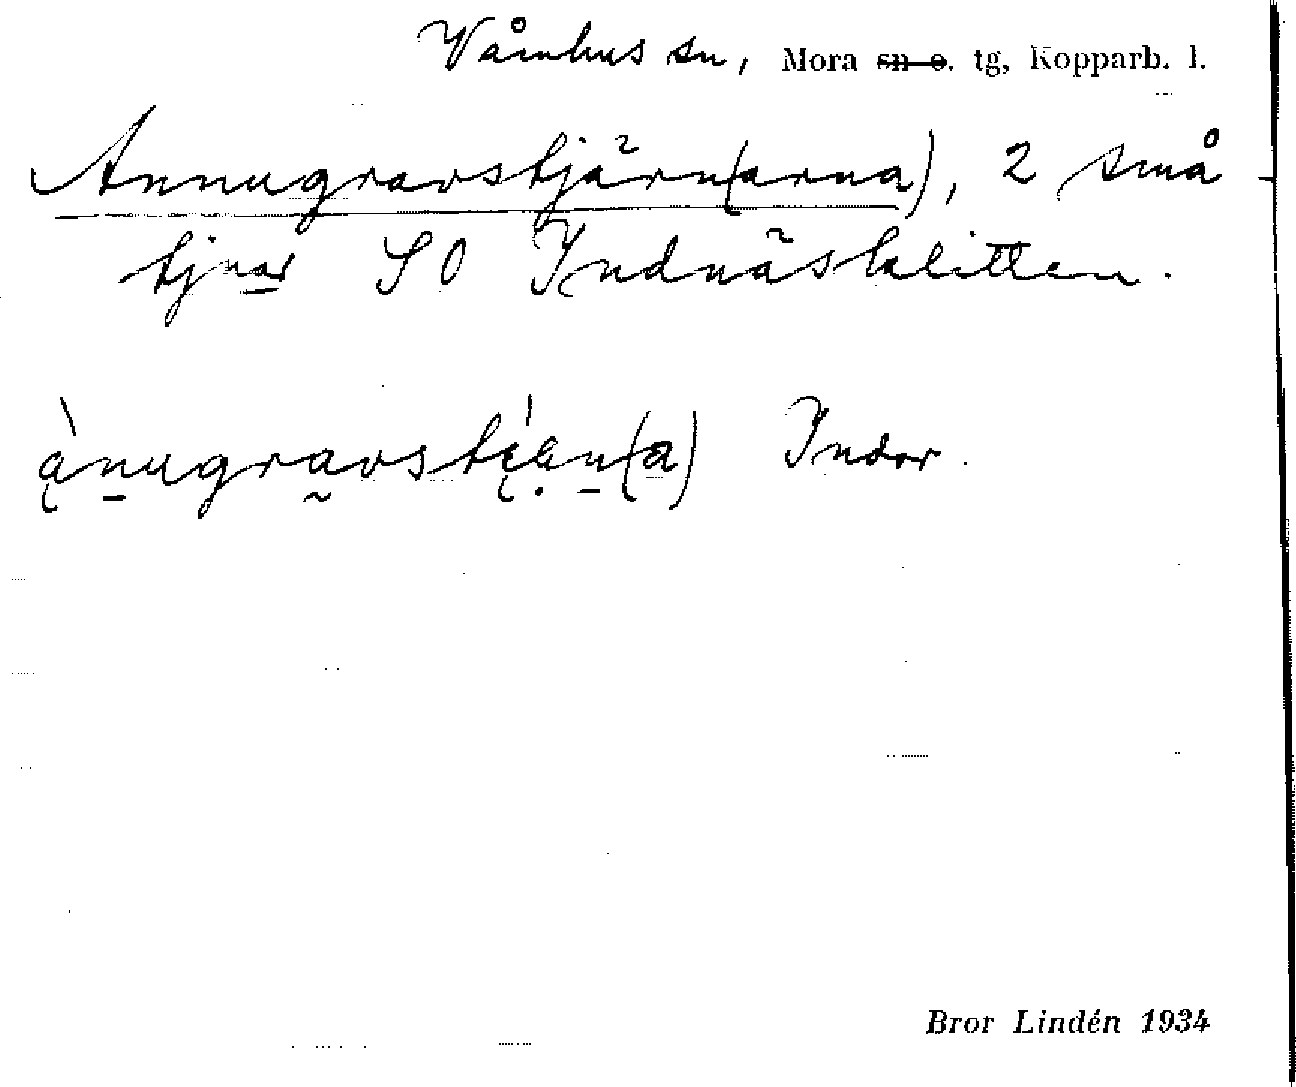 Våmhus sn, Mora sn o. tg, Kopparb. l.
Annugravstjärn(arna), 2 små
tjnar SO Indnäsklitten.
ànugravstiän(a) Indor.
Bror Lindén 1934